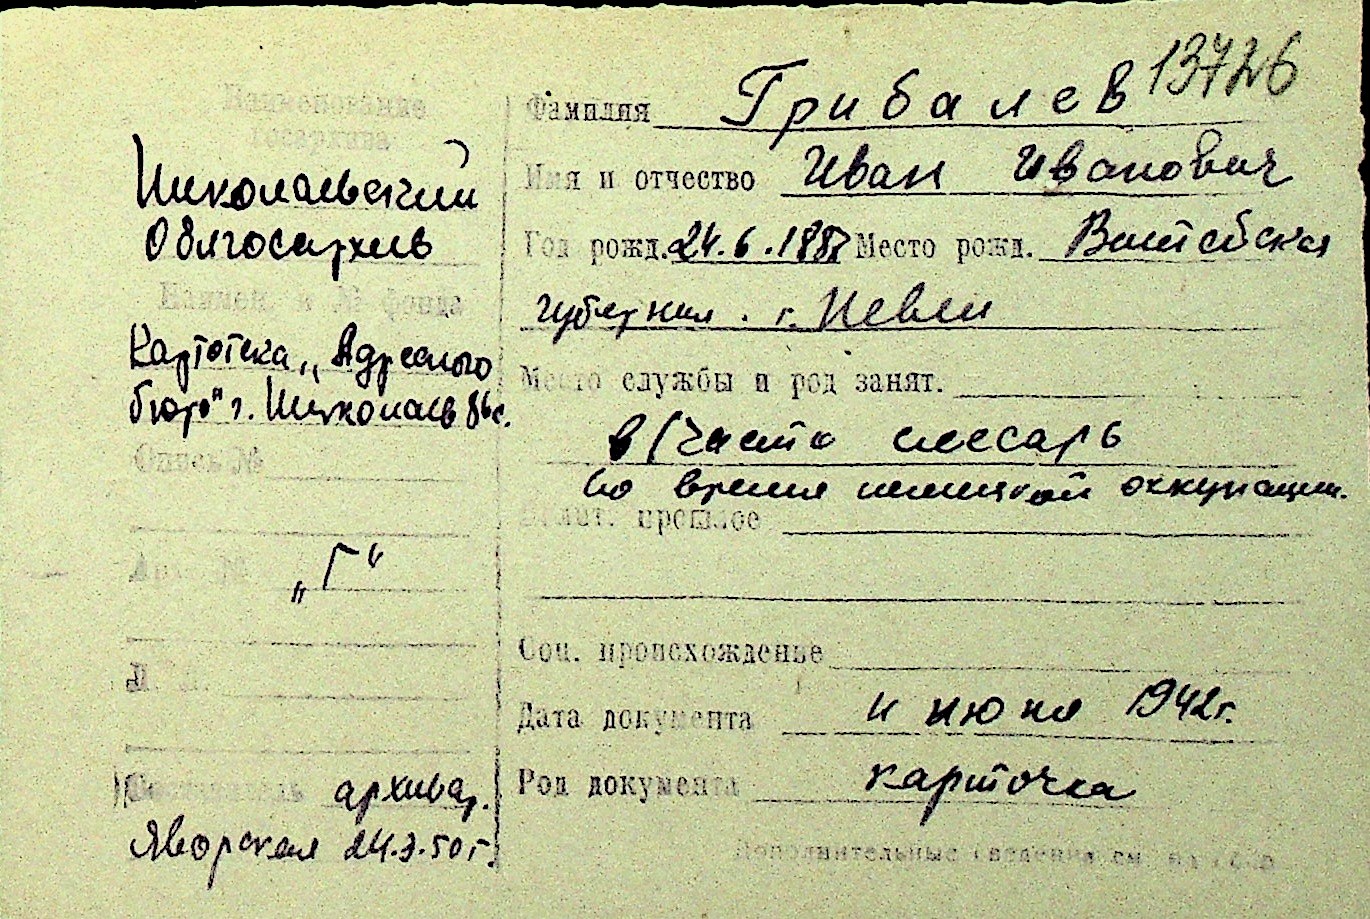 13726
Наименование
госархива
Николаевский
Облгосархив
Наимен. и № фонда
Картотека „Адресного
бюро" г. Николаев
Опись №
„Г"
Л. Л.
Составитель архивар.
Яворская 24.3.50 г.
Фамилия Грибалев
Имя и отчество Иван Иванович
Год рожд. 24.6.1887 Место рожд. Витебская
губерния. г. Невли
Место службы и род занят.
в/часть слесарь
во время немецкой оккупации.
Полит. прошлое
Соц. происхожденье
Дата документа 11 июня 1942 г.
Род документа карточка
Дополнительные сведения см. на обор.